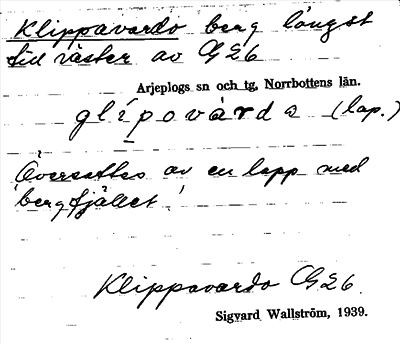 Klippavardo berg längst
sid väster av G26
Arjeplogs sn och tg, Norrbottens län.
glipovárda (lap.)
Översattes av en lapp med
'bergfjället'
Klippavardo G26.
Sigvard Wallström, 1939.